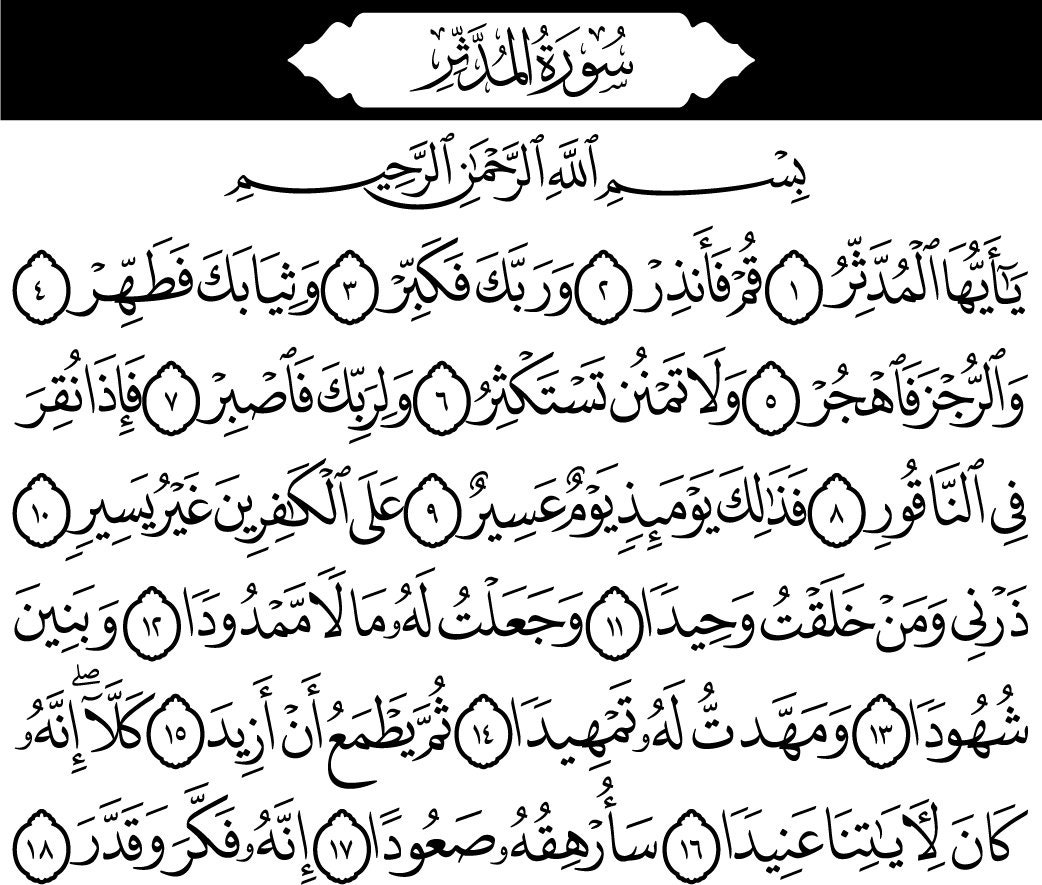 سُورَةُ الْمُدَّثِّرِ
بِسْمِ ٱللَّهِ ٱلرَّحْمَٰنِ ٱلرَّحِيمِ
يَٰٓأَيُّهَا ٱلْمُدَّثِّرُ ١ قُمْ فَأَنذِرْ ٢ وَرَبَّكَ فَكَبِّرْ ٣ وَثِيَابَكَ فَطَهِّرْ ٤
وَٱلرُّجْزَ فَٱهْجُرْ ٥ وَلَا تَمْنُن تَسْتَكْثِرُ ٦ وَلِرَبِّكَ فَٱصْبِرْ ٧ فَإِذَا نُقِرَ
فِى ٱلنَّاقُورِ ٨ فَذَٰلِكَ يَوْمَئِذٍ يَوْمٌ عَسِيرٌ ٩ عَلَى ٱلْكَٰفِرِينَ غَيْرُ يَسِيرٍ ١٠
ذَرْنِى وَمَنْ خَلَقْتُ وَحِيدًا ١١ وَجَعَلْتُ لَهُۥ مَالًا مَّمْدُودًا ١٢ وَبَنِينَ
شُهُودًا ١٣ وَمَهَّدتُّ لَهُۥ تَمْهِيدًا ١٤ ثُمَّ يَطْمَعُ أَنْ أَزِيدَ ١٥ كَلَّآ ۖ إِنَّهُۥ
كَانَ لِأَيَٰتِنَا عَنِيدًا ١٦ سَأُرْهِقُهُۥ صَعُودًا ١٧ إِنَّهُۥ فَكَّرَ وَقَدَّرَ ١٨